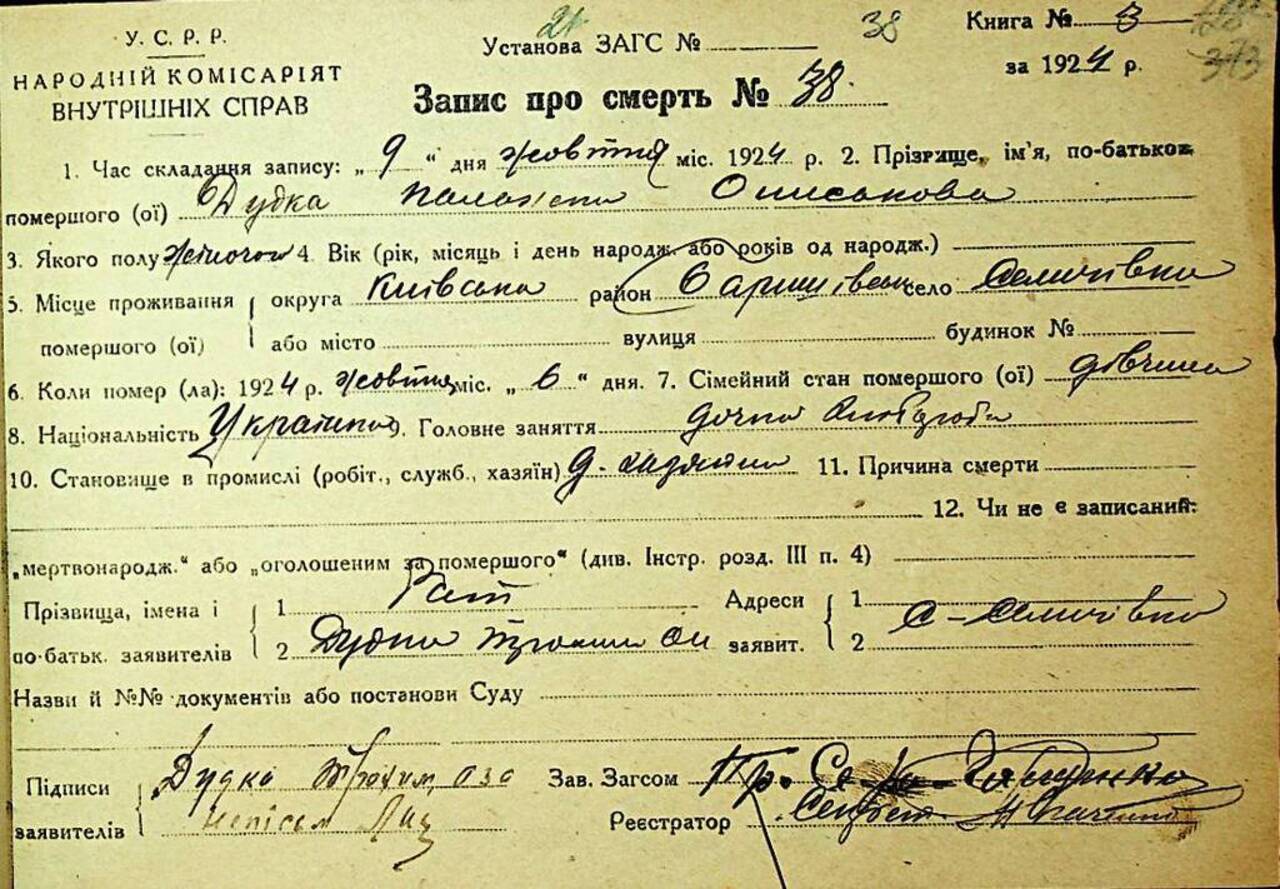 У. С. Р. Р.
НАРОДНІЙ КОМІСАРІЯТ
ВНУТРІШНІХ СПРАВ
Установа ЗАГС № 21
38
Книга № 3
за 1924 р.
373
Запис про смерть № 38.
1. Час складання запису: „ 9 “ дня жовтня міс. 1924 р. 2. Прізвище, ім'я, по-батькові
помершого (ої) Дудка
3. Якого полу жіночого 4. Вік (рік, місяць і день народж. або років од народж.)
5. Місце проживання помершого (ої) округа Київська район село Селичівка
або місто вулиця будинок №
6. Коли помер (ла): 1924 р. жовтня міс. „ 6 “ дня. 7. Сімейний стан помершого (ої) дівчина
8. Національність Українка 9. Головне заняття дочка хлібороба
10. Становище в промислі (робіт., служб., хазяїн) 11. Причина смерти
12. Чи не є записаний:
„мертвонародж.“ або „оголошеним за помершого“ (див. Інстр. розд. III п. 4)
Прізвища, імена і по-батьк. заявителів 1 Адреси заявит. 1
2 Дудка 2 с-Селичівка
Назви й №№ документів або постанови Суду
Підписи заявителів Дудка Трохим, Зав. Загсом
Реєстратор